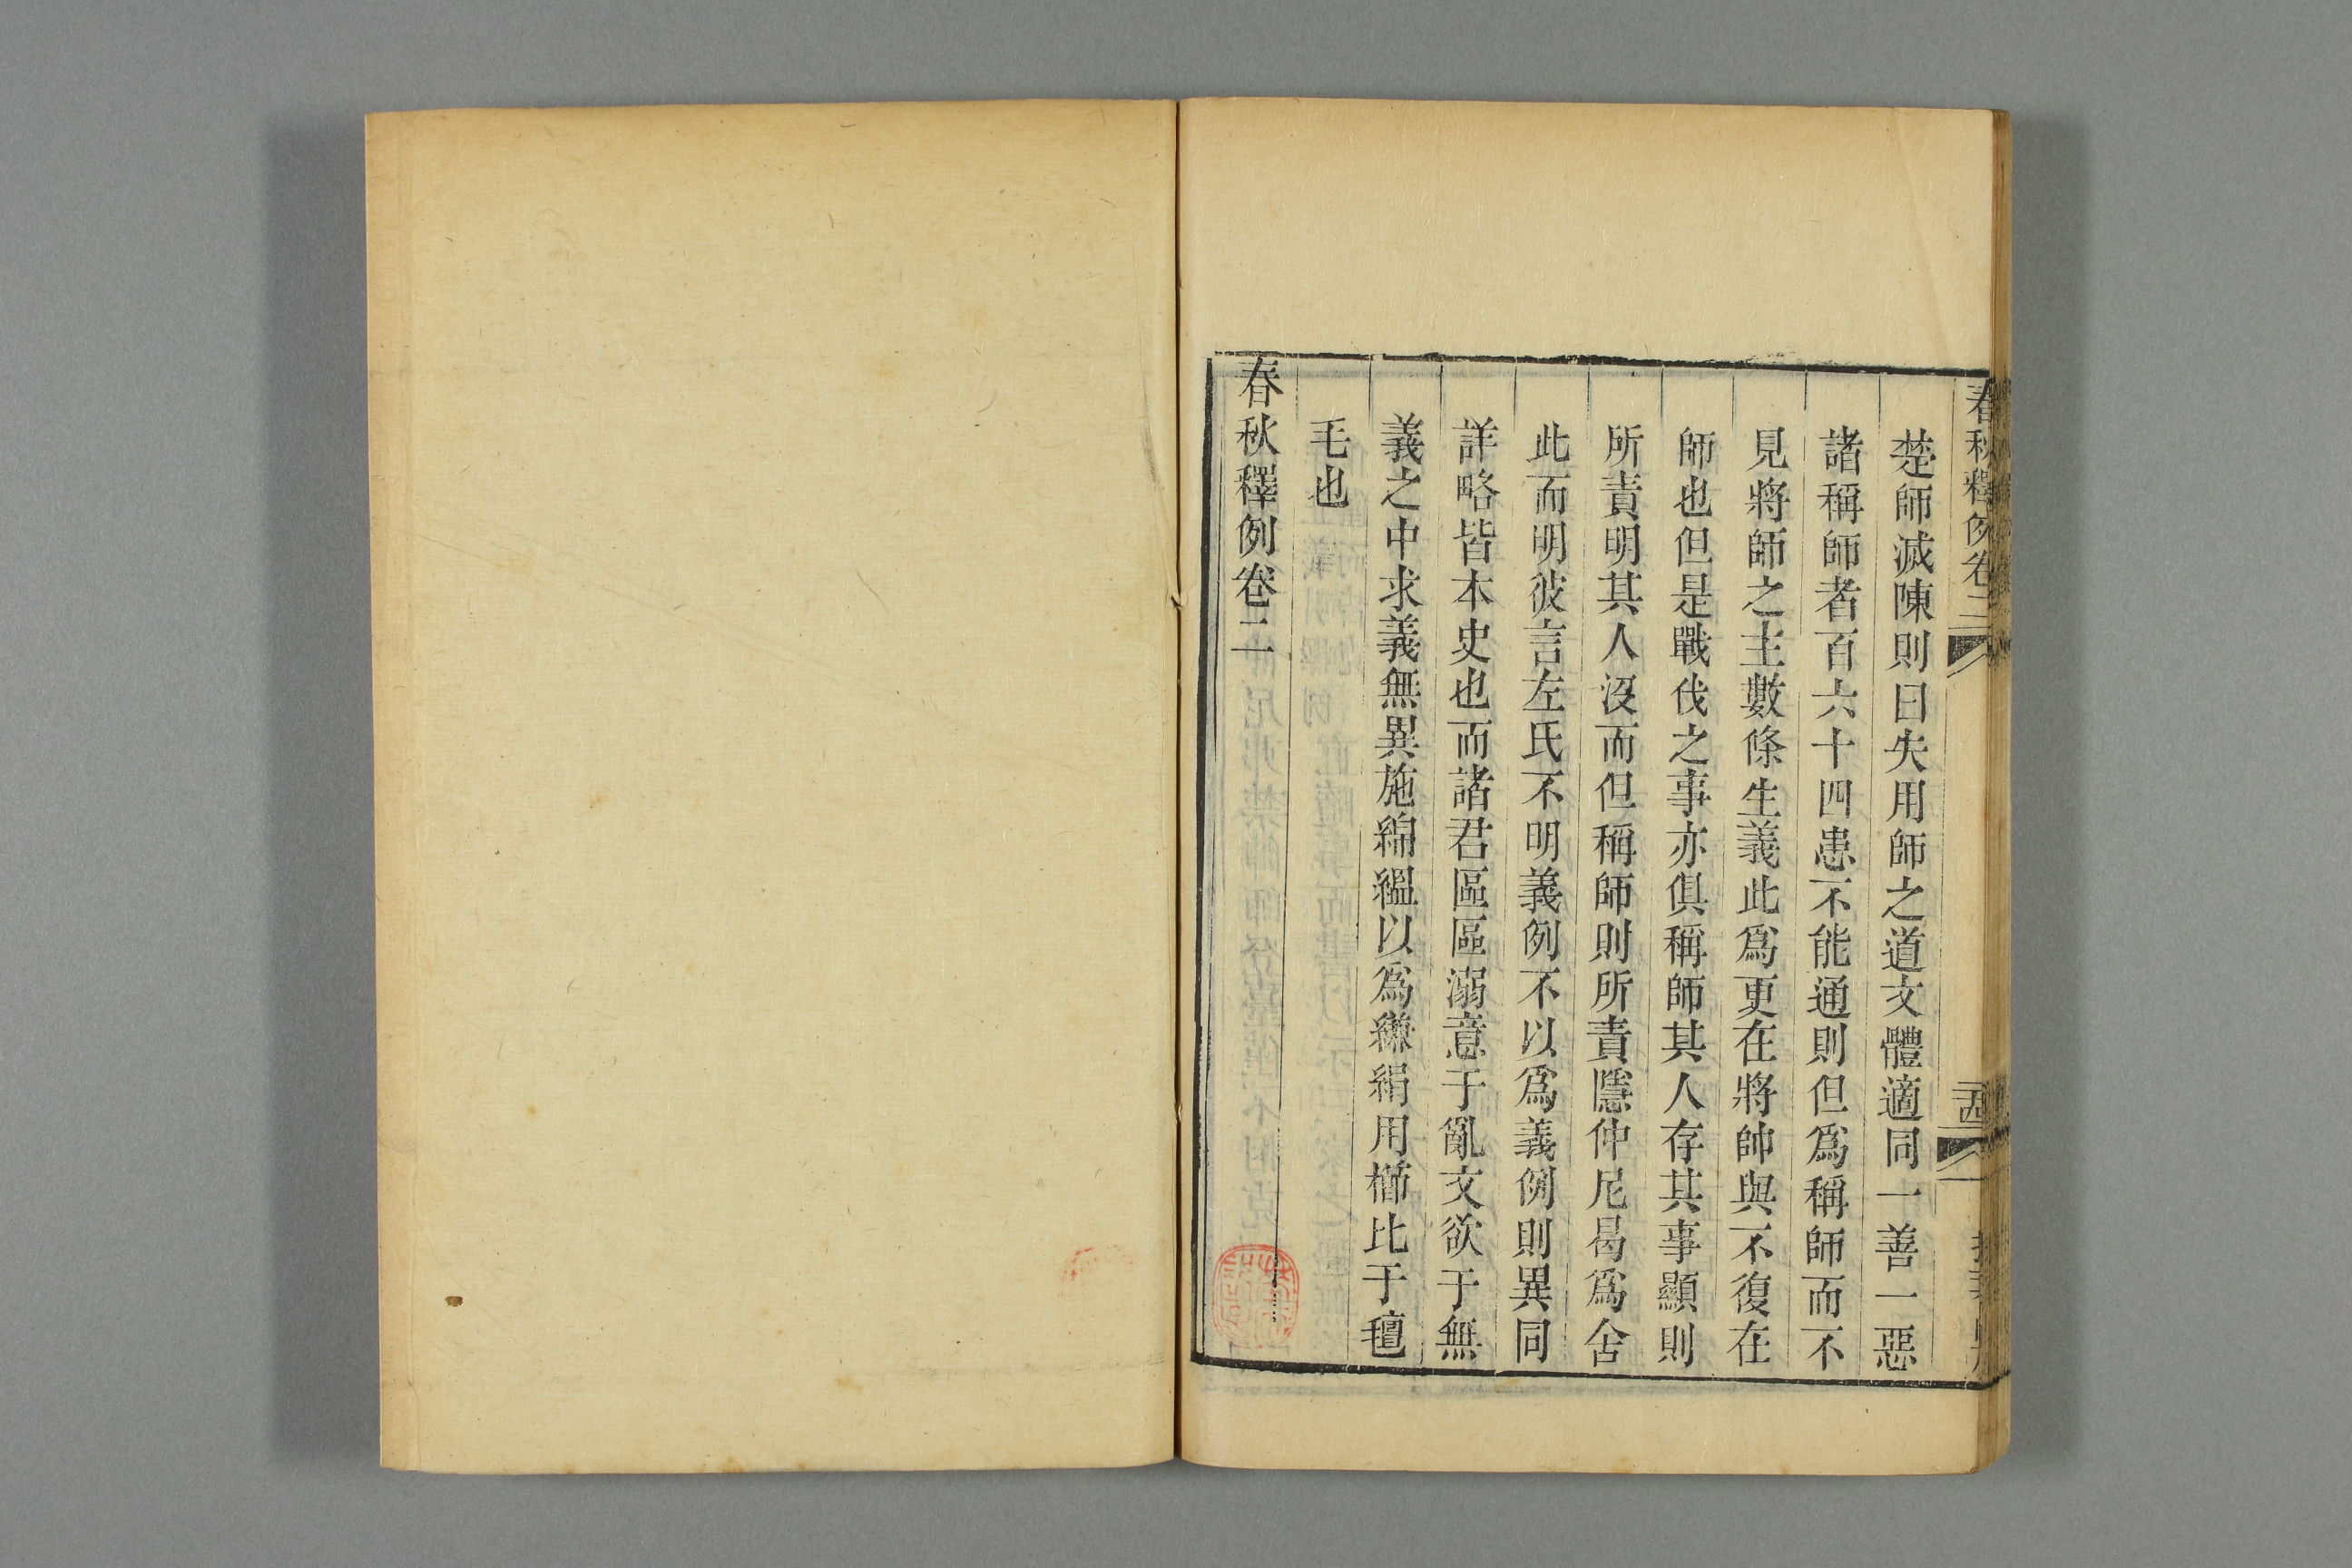 春秋釋例卷二
楚師滅陳則曰失用師之道文體適同一善一惡
諸稱師者百六十四患不能通則但爲稱師而不
見將師之主數條生義此爲更在將帥與不復在
師也但是戰伐之事亦俱稱師其人存其事顯則
所責明其人沒而但稱師則所責隱仲尼曷爲舍
此而明彼言左氏不明義例不以爲義例則異同
詳略皆本史也而諸君區區溺意于亂文欲于無
義之中求義無異施綿縕以爲縑絹用櫛比于氊
毛也
春秋釋例卷二